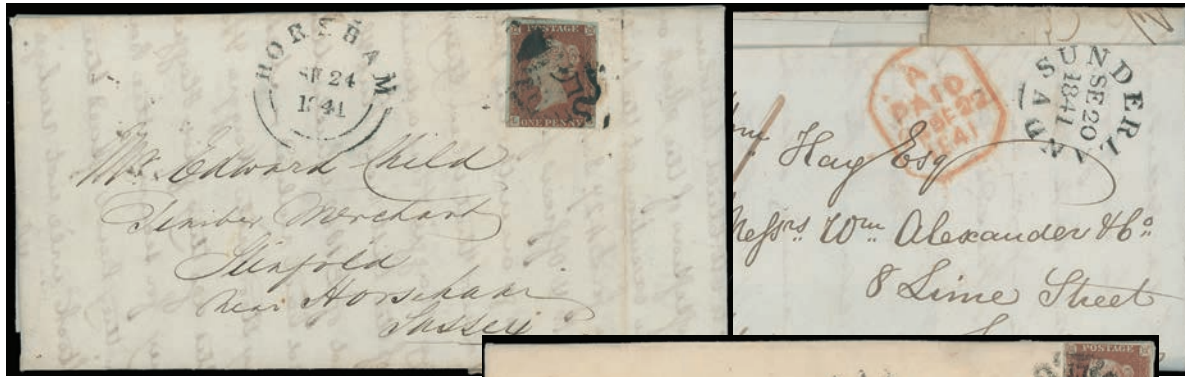 HORSHAM
SE 24
1841
POSTAGE
ONE PENNY
Mr Edward Child
Timber Merchant
Slinfold
near Horsham
Sussex
A
PAID
SE 22
1841
SUNDERLAND
SE 20
1841
Hay Esq
Messrs Wm Alexander & Co
8 Lime Street
POSTAGE